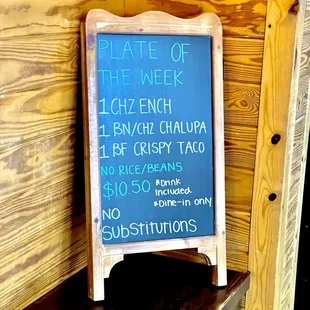 PLATE OF
THE WEEK
1 CHZ ENCH
1 BN/CHZ CHALUPA
1 BF CRISPY TACO
NO RICE/BEANS
$10.50 *Drink
included
*Dine-in only
NO
Substitutions